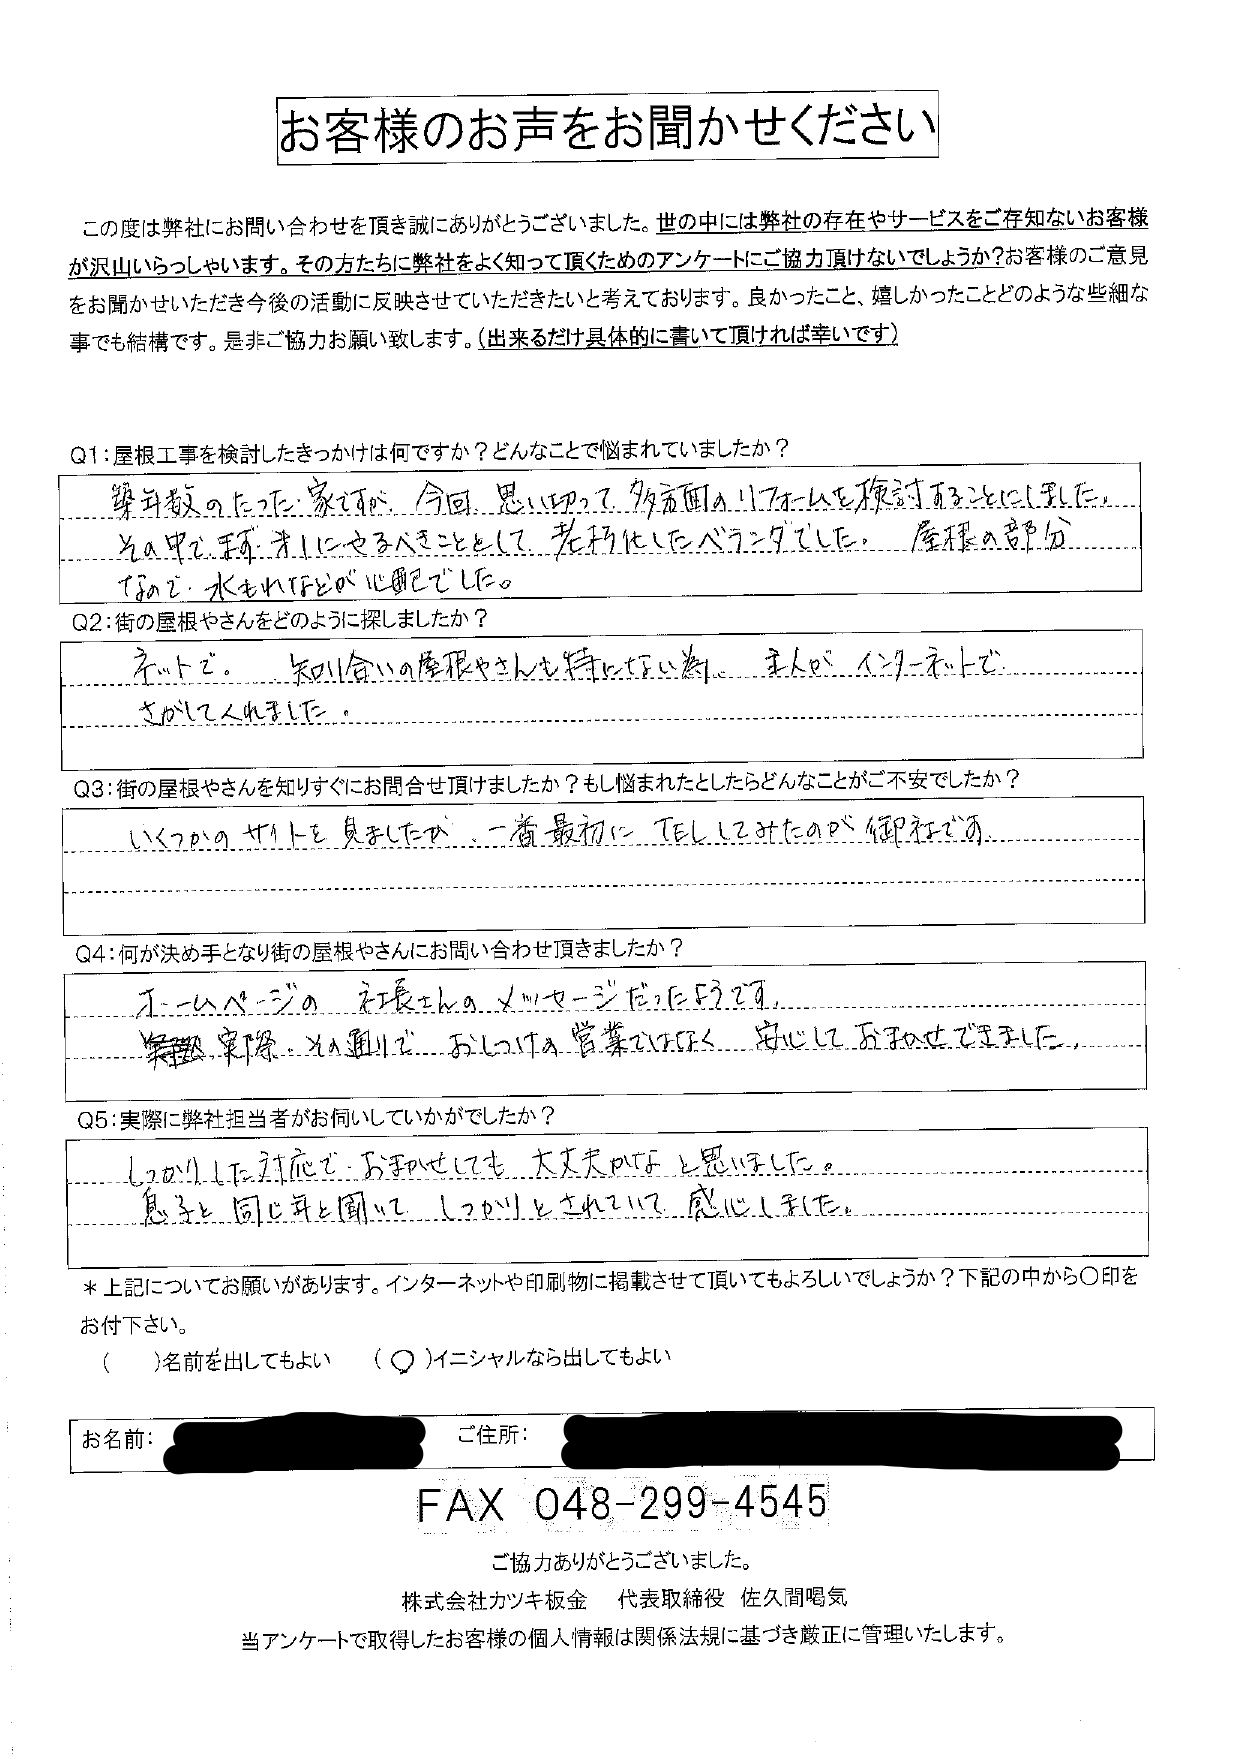 お客様のお声をお聞かせください
この度は弊社にお問い合わせを頂き誠にありがとうございました。世の中には弊社の存在やサービスをご存知ないお客様
が沢山いらっしゃいます。その方たちに弊社をよく知って頂くためのアンケートにご協力頂けないでしょうか?お客様のご意見
をお聞かせいただき今後の活動に反映させていただきたいと考えております。良かったこと、嬉しかったことどのような些細な
事でも結構です。是非ご協力お願い致します。(出来るだけ具体的に書いて頂ければ幸いです)
Q1:屋根工事を検討したきっかけは何ですか?どんなことで悩まれていましたか?
築年数のたった家ですが、今回、思い切って、多方面のリフォームを検討することにしました。
その中で、まず、オ1にやるべきこととして、老朽化したベランダでした。 屋根の部分
なので、水もれなどが心配でした。
Q2:街の屋根やさんをどのように探しましたか?
ネットで。 知り合いの屋根やさんも特にない為、主人が、インターネットで
さがしてくれました。
Q3:街の屋根やさんを知りすぐにお問合せ頂けましたか?もし悩まれたとしたらどんなことがご不安でしたか?
いくつかのサイトを見ましたが、一番最初に TELしてみたのが御社です。
Q4:何が決め手となり街の屋根やさんにお問い合わせ頂きましたか?
ホームページの 社長さんのメッセージだったようです。
実際、その通りで、おしつけの営業ではなく 安心しておまかせできました。
Q5:実際に弊社担当者がお伺いしていかがでしたか?
しっかりした対応で、おまかせしても大丈夫かなと思いました。
息子と同じ年と聞いて、しっかりとされていて、感心しました。
*上記についてお願いがあります。インターネットや印刷物に掲載させて頂いてもよろしいでしょうか?下記の中から〇印を
お付下さい。
( )名前を出してもよい (〇)イニシャルなら出してもよい
お名前: ご住所:
FAX 048-299-4545
ご協力ありがとうございました。
株式会社カツキ板金 代表取締役 佐久間喝気
当アンケートで取得したお客様の個人情報は関係法規に基づき厳正に管理いたします。